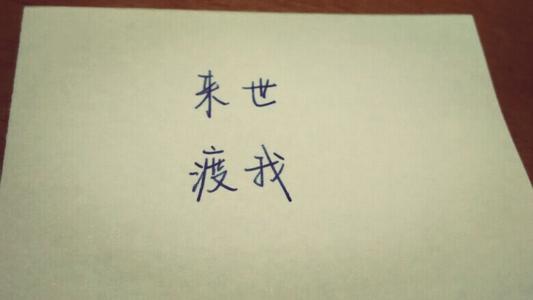 来世
渡我